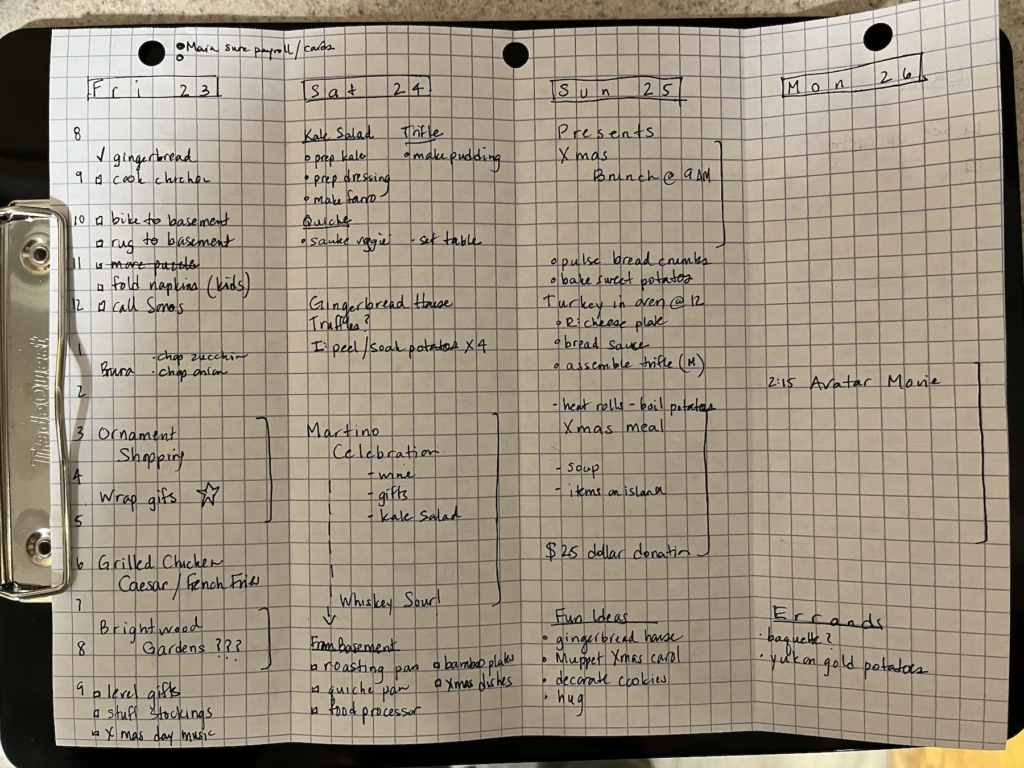 Main sure payroll/cards
Fri 23
8
✓ gingerbread
9 cook chicken
10 bike to basement
rug to basement
11 more puzzle
fold napkins (kids)
12 call Sonos
1
· chop zucchin
· chop onion
2
3 Ornament
Shopping
4
Wrap gifs ☆
5
6 Grilled Chicken
Caesar / French Fries
7
Brightwood
8 Gardens ???
9 level gifts
stuff stockings
Xmas day music
Sat 24
Kale Salad Trifle
• prep kale • make pudding
• prep dressing
• make farro
Quiche
• saute veggie - set table
Gingerbread House
Truffles?
I: peel/soak potatoes x 4
Martino
Celebration
- wine
- gifts
- kale salad
Whiskey Sour!
From Basement
roasting pan bamboo plates
quiche pan Xmas dishes
food processor
Sun 25
Presents
Xmas
Brunch @ 9 AM
• pulse bread crumbs
• bake sweet potatoes
Turkey in oven @ 12
cheese plate
• bread sauce
• assemble trifle (M)
- heat rolls - boil potatoes
Xmas meal
- soup
- items on island
$25 dollar donation
Fun Ideas
• gingerbread house
• Muppet Xmas carol
• decorate cookies
• hug
Mon 26
2:15 Avatar Movie
Errands
· baguette?
· yukon gold potatoes